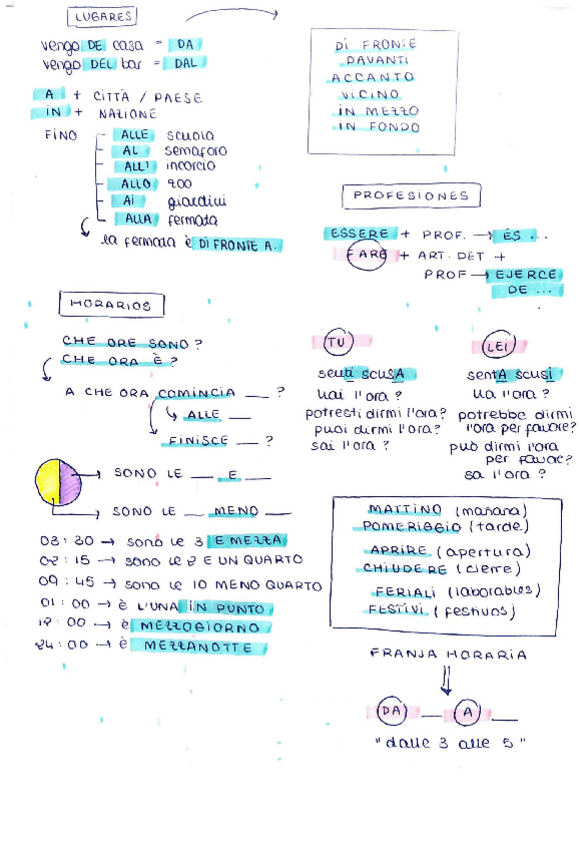 LUGARES
vengo DE casa = DA
vengo DEL bar = DAL
A + CITTÀ / PAESE
IN + NAZIONE
FINO
ALLE scuola
AL semaforo
ALL' incorcio
ALLO zoo
Ai giardini
ALLA fermata
la fermata è DI FRONTE A.
Di FRONTE
DAVANTI
ACCANTO
VICINO
iN MEZZO
iN FONDO
PROFESIONES
ESSERE + PROF. → ÉS ...
FARE + ART. DET +
PROF → EJERCE
DE ...
HORARIOS
CHE ORE SONO ?
CHE ORA È ?
A CHE ORA COMINCIA __ ?
↳ ALLE __
FINISCE __ ?
→ SONO LE __ E __
→ SONO LE __ MENO __
03:30 → sono le 3 E MEZZA
02:15 → sono le 2 E UN QUARTO
09:45 → sono le 10 MENO QUARTO
01:00 → è L'UNA IN PUNTO
12:00 → è MEZZOGIORNO
24:00 → è MEZZANOTTE
TU
senti scusA
hai l'ora ?
potresti dirmi l'ora?
puoi dirmi l'ora?
sai l'ora ?
LEI
sentA scusi
ha l'ora ?
potrebbe dirmi
l'ora per favore?
può dirmi l'ora
per favore?
sa l'ora ?
MATTINO (mañana)
POMERIGGIO (tarde)
APRIRE (apertura)
CHIUDERE (cierre)
FERIALI (laborables)
FESTIVI (festivos)
FRANJA HORARIA
DA __ A __
"dalle 3 alle 5"